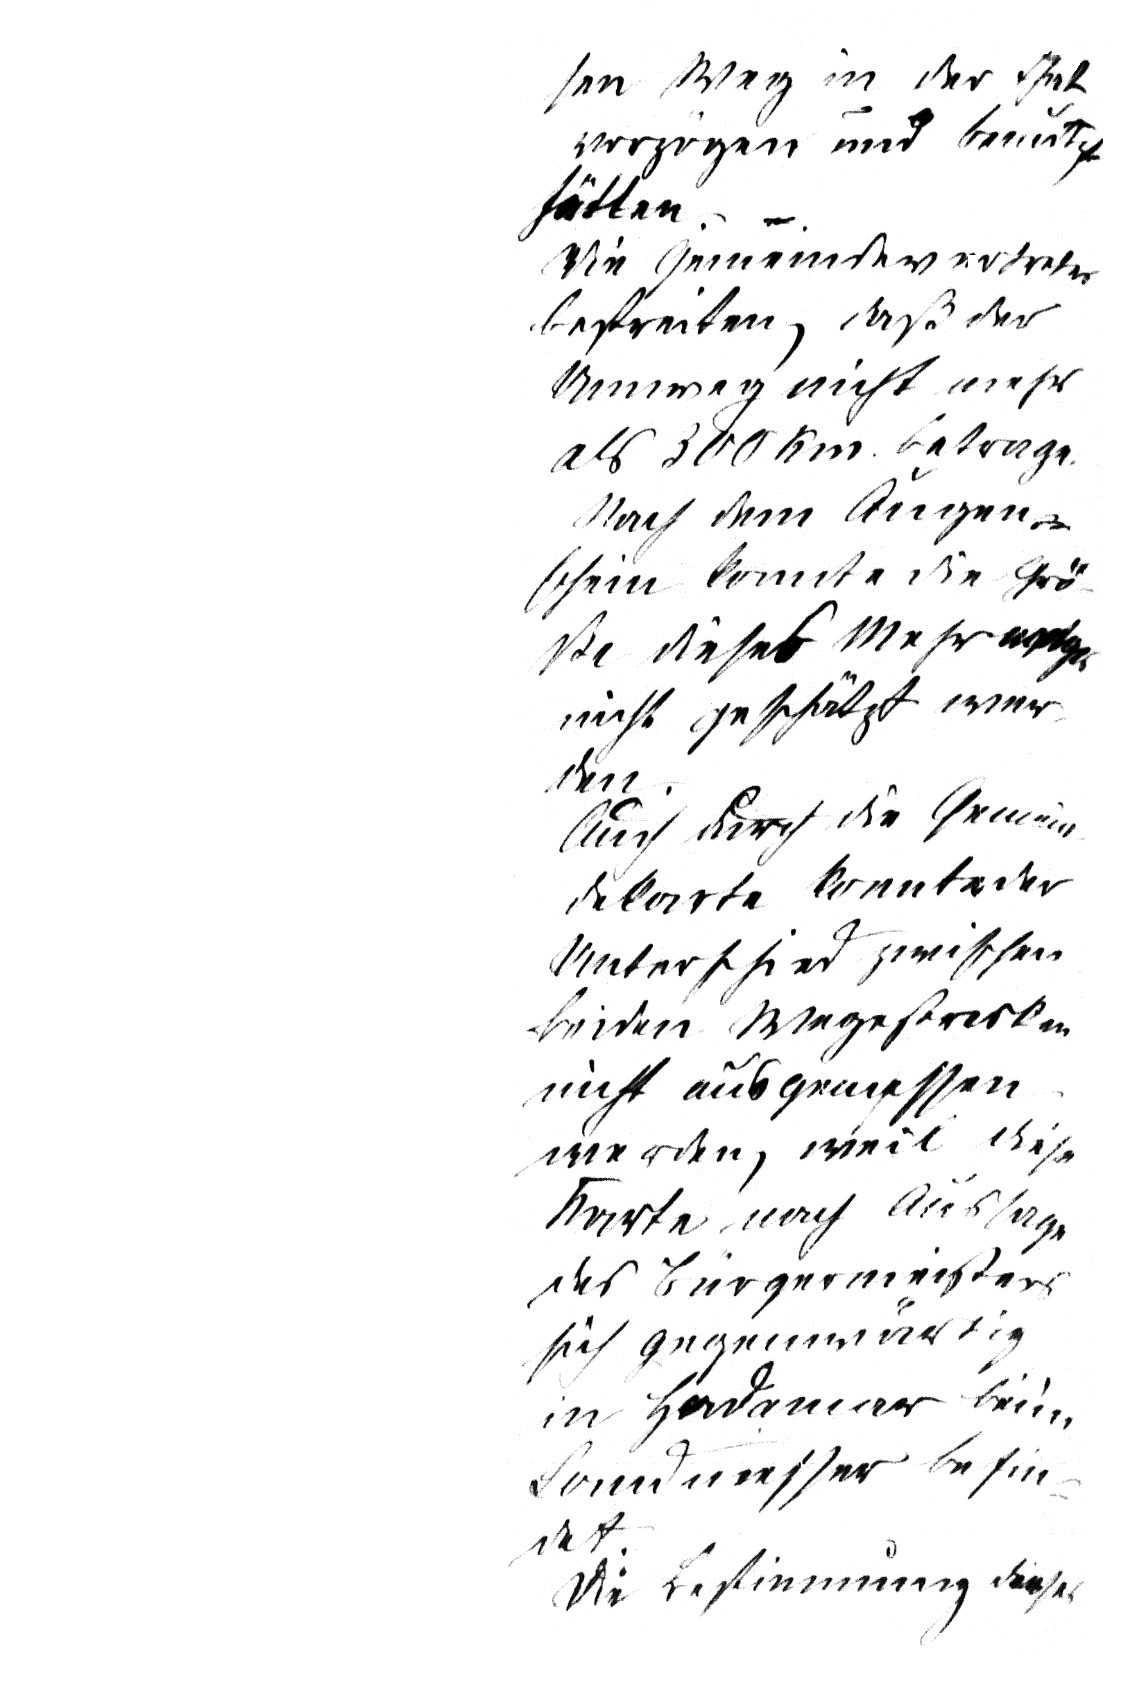 sen Weg in der That
vorzögen und benutzt
hätten. –
Die Gemeindevertreter
bestreiten, daß der
Umweg nicht mehr
als 300 Km. betrage.
Nach dem Augen-
schein konnte die Grö-
ße dieses Mehrweges
nicht geschätzt wer-
den.
Auch durch die Gemein-
dekarte konnte der
Unterschied zwischen
beiden Wegestrecken
nicht ausgemessen
werden, weil diese
Karte nach Aussage
des Bürgermeisters
sich gegenwärtig
in Hadamar beim
Landmesser befin-
det.
Die Bestimmung dieses